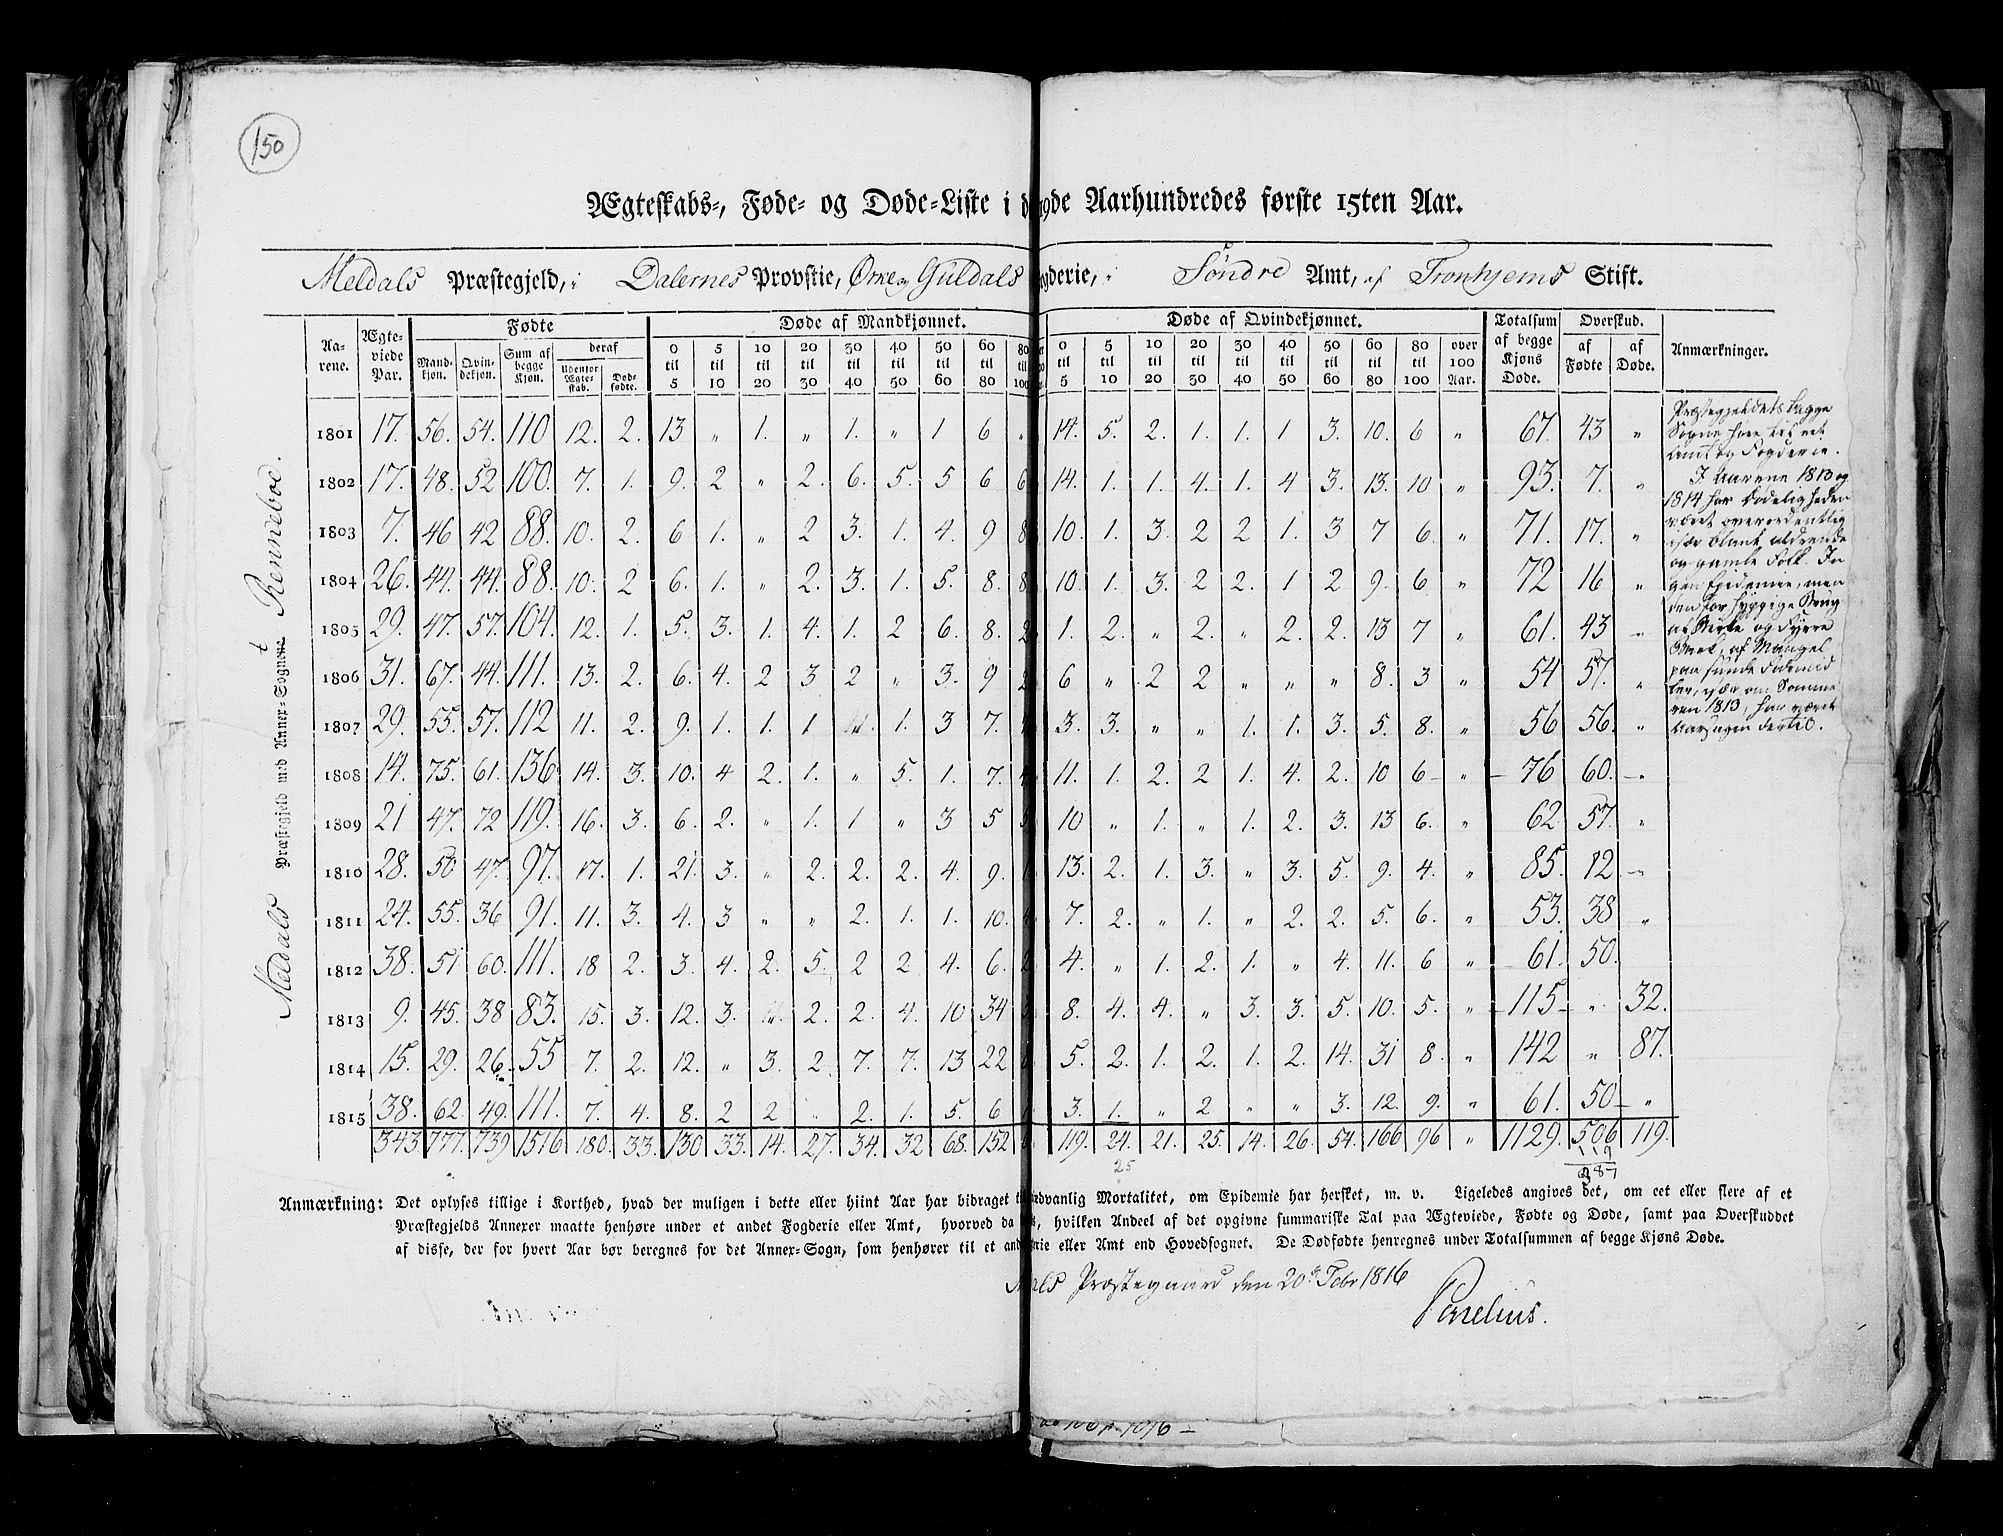 150
Ægteskabs-, Føde- og Døde-Liste i d 19de Aarhundredes første 15ten Aar.
Meldals Præstegjeld, i Dalernes Provstie, Ørke og Guldals gderie, i Søndre Amt, af Tronhjems Stift.
Meldals Præstegjeld med Anner-Sognet Renneboe.
Aarene. Ægteviede Par. Fødte Døde af Mandkjønnet. Døde af Qvindekjønnet. Totalsum af begge Kjøns Døde. Overskud. Anmærkninger.
Mandkjøn. Qvindekjøn. Sum af begge Kjøn. deraf Udenfor Ægteskab. Dødfødte. 0 til 5 5 til 10 10 til 20 20 til 30 30 til 40 40 til 50 50 til 60 60 til 80 80 til 100 0 til 5 5 til 10 10 til 20 20 til 30 30 til 40 40 til 50 50 til 60 60 til 80 80 til 100 over 100 Aar. af Fødte af Døde.
1801 17. 56. 54. 110 12. 2. 13 " 1. " 1. " 1 6 " 14. 5. 2. 1. 1. 1 3. 10. 6 " 67. 43 "
1802 17. 48. 52 100. 7. 1. 9. 2 " 2. 6. 5. 5 6 6 14. 1. 1. 4. 1. 4 3. 13. 10 " 93. 7. "
1803 7. 46 42 88. 10. 2. 6 1. " 2 3. 1. 4. 9 8 10. 1. 3. 2 2 1. 3 7 6. " 71. 17. "
1804 26. 44. 44. 88. 10. 2 6. 1. " 2. 3. 1. 5. 8. 8 10. 1. 3. 2 2. 1 2 9. 6 " 72 16 "
1805 29. 47. 57. 104. 12. 1. 5. 3. 1. 4. 1. 2 6. 8. 2 1. 2. " 2. " 2. 2. 13 7 " 61. 43 "
1806 31. 67. 44. 111. 13. 2. 6. 4. 2 3 2 " 3. 9 2 6 " 2 2 " " " 8. 3 " 54 57. "
1807 29. 55. 57. 112 11. 2. 9. 1. 1. 1 1. 3 7. 3. 3. " " 1. 1. 3. 5. 8. " 56 56. "
1808 14. 75. 61. 136 14. 3. 10. 4 2. 1. " 5. 1. 7. 4 11. 1. 2. 2 1. 4. 2. 10 6 " 76 60. "
1809 21 47. 72 119. 16. 3. 6. 2. " 1. 1 " 3 5 5 10 " 1. " 1. 2. 3. 13 6. " 62. 57. "
1810 28. 50 47. 97. 17. 1. 21. 3. " 2. 2. 2. 4. 9. 1 13. 2. 1. 3. " 3. 5. 9. 4. " 85. 12. "
1811 24. 55. 36 91. 11. 3. 4. 3 " " 2. 1. 1. 10. 4 7. 2. " 1. " 2 2. 5. 6. " 53. 38 "
1812 38. 51 60. 111. 18 2. 3. 4. 2. 5. 2 2 4. 6. 2 4. " 1. 2. 1. " 4. 11. 6 " 61. 50.
1813 9. 45. 38 83. 15. 3. 12. 3. 2. 2. 4. 10 34 8. 4. 4. " 3. 3. 5. 10. 5. " 115 " 32.
1814 15. 29. 26. 55 7. 2. 12. " 3. 2. 7. 7. 13 22 5. 2. 1. 2. 1. 2. 14. 31 8. " 142 " 87.
1815 38. 62. 49. 111. 7. 4. 8. 2 2 " 2. 1. 5. 6 3. 1. " 2 " " 3. 12. 9. " 61. 50 "
343. 777. 739 1516 180. 33. 130. 33. 14. 27. 34. 32 68. 152 119. 24. 21. 25. 14. 26. 54. 166 96 " 1129. 506 119.
25 119
387
Præstegjeldets begge
Sogne høre til eet
Amt og Fogderie.
I Aarene 1813 og
1814 har Dødeligheden
været overordentlig
især blant aldrende
og gamle Folk. In
gen Epidemie, men
den for hyppige Brug
af Birke og Fyrre
Brød, af Mangel
paa sunde Fødemid
ler, især om Somme
ren 1813, har været
Aarsagen dertil.
Anmærkning: Det oplyses tillige i Korthed, hvad der muligen i dette eller hiint Aar har bidraget t dvanlig Mortalitet, om Epidemie har hersket, m. v. Ligeledes angives det, om eet eller flere af et
Præstegjelds Annexer maatte henhøre under et andet Fogderie eller Amt, hvorved da s, hvilken Andeel af det opgivne summariske Tal paa Ægteviede, Fødte og Døde, samt paa Overskuddet
af disse, der for hvert Aar bør beregnes for det Anner-Sogn, som henhører til et and rie eller Amt end Hovedsognet. De Dødfødte henregnes under Totalsummen af begge Kjøns Døde.
Præstegaard den 20de Febr 1816